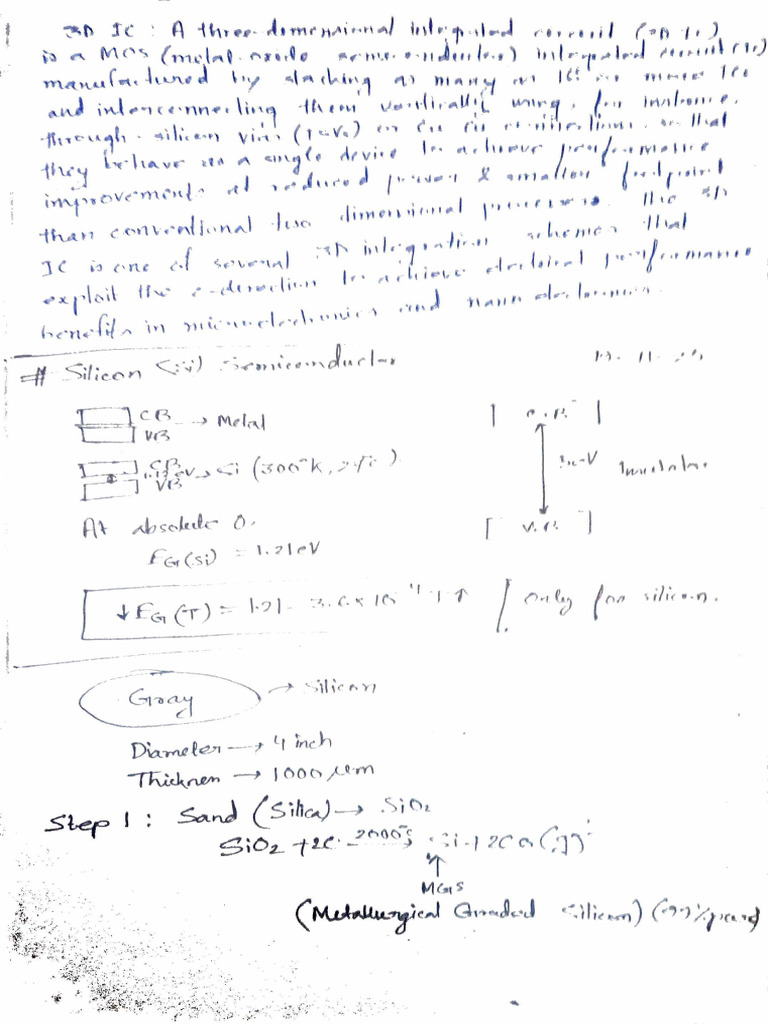 3D IC : A three-dimensional integrated circuit (3D IC)
is a MOS (metal-oxide semiconductor) integrated circuit (IC)
manufactured by stacking as many as 16 or more ICs
and interconnecting them vertically using, for instance,
through-silicon vias (TSVs) or Cu-Cu connections, so that
they behave as a single device to achieve performance
improvements at reduced power & smaller footprint
than conventional two dimensional processes. The 3D
IC is one of several 3D integration schemes that
exploit the z-direction to achieve electrical performance
benefits in microelectronics and nanoelectronics.
# Silicon (Si) Semiconductor
CB → Metal
VB
C.B.
CB
VB → Si (300°K,
Insulator
V.B.
At absolute 0,
EG(Si) = 1.21eV
↓ EG(T) = 1.21 - 3.6x10⁻⁴ T↑ Only for silicon.
Gray → Silicon
Diameter → 4 inch
Thicknen → 1000 μm
Step 1 : Sand (Silica) → SiO2
SiO2 + 2C 2000°
↑
MGS
(Metallurgical Graded Silicon)